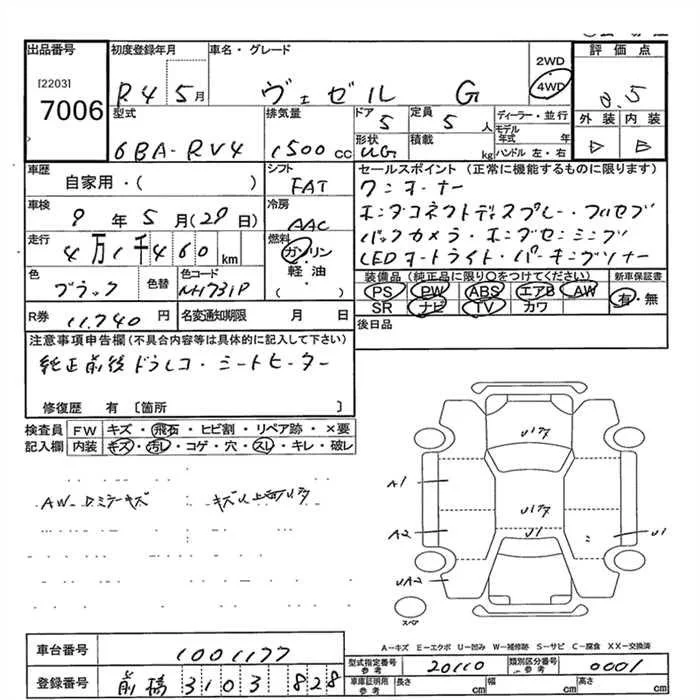 出品番号 初度登録年月 車名・グレード 2WD 評価点
[2203] R4 5月 ヴェゼル G 4WD
7006 型式 排気量 ドア 5 定員 5人 ディーラー・並行 外装 内装
6BA-RV4 1500cc 形状 UG 積載 kg モデル年式 年 ハンドル 左・右 B
車歴 シフト セールスポイント (正常に機能するものに限ります)
自家用・( ) FAT ワンオーナー
車検 9年5月(29日) 冷房 AAC ホンダコネクトディスプレー・フルセグ
走行 4万1千460km 燃料 ガソリン バックカメラ・ホンダセンシング
軽油 ・( ) LEDオートライト・パーキングソナー
色 ブラック 色替 色コード NH731P 装備品(純正品に限り○をつけてください) 新車保証書
PS PW ABS エアB AW 有・無
R券 11,740円 名変通知期限 月 日 SR ナビ TV カワ
注意事項申告欄(不具合内容等は具体的に記入して下さい) 後日品
純正前後ドラレコ・シートヒーター
修復歴 有 〔箇所 〕
検査員 FW キズ・飛石・ヒビ割・リペア跡・×要
記入欄 内装 キズ・汚レ・コゲ・穴・スレ・キレ・破レ
AW・Dミラーキズ
A1
A2
U1
U1
UA2
スペア
A-キズ E-エクボ U-凹み W-補修跡 S-サビ C-腐食 XX-交換済
車台番号 1001177 型式指定番号 参考 20110 類別区分番号 参考 0001
登録番号 前橋 3103 828 車庫証明用 参考 長さ cm 幅 cm 高さ cm